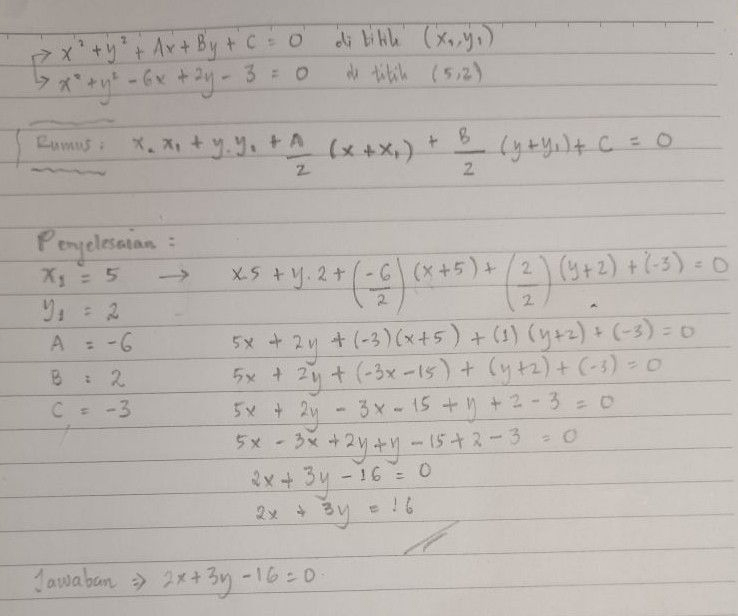 → x² + y² + Ax + By + C = 0 di titik (x₁,y₁)
↳ x² + y² - 6x + 2y - 3 = 0 di titik (5,2)
Rumus: x. x₁ + y. y₁ + A/2 (x + x₁) + B/2 (y+y₁) + C = 0
Penyelesaian :
x₁ = 5 → x.5 + y.2 + (-6/2) (x+5) + (2/2) (y+2) + (-3) = 0
y₁ = 2
A = -6 5x + 2y + (-3)(x+5) + (1) (y+2) + (-3) = 0
B = 2 5x + 2y + (-3x-15) + (y+2) + (-3) = 0
C = -3 5x + 2y - 3x - 15 + y + 2 - 3 = 0
5x - 3x + 2y + y - 15 + 2 - 3 = 0
2x + 3y - 16 = 0
2x + 3y = 16
Jawaban ⇒ 2x + 3y - 16 = 0.